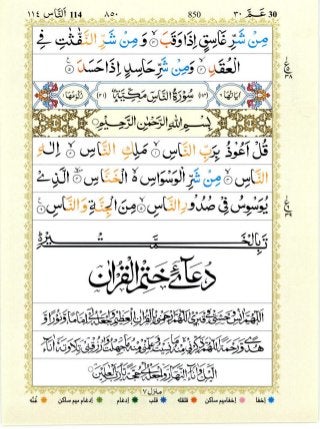 النَّاس ١١٤ 114 ٨٥٠ 850 عَمَّ ٣٠ 30
مِنْ شَرِّ غَاسِقٍ اِذَا وَقَبَ ۙ وَمِنْ شَرِّ النَّفّٰثٰتِ فِی
الْعُقَدِ ۙ وَمِنْ شَرِّ حَاسِدٍ اِذَا حَسَدَ
سُوْرَةُ النَّاسِ مَكِّيَّةٌ
بِسْمِ اللّٰهِ الرَّحْمٰنِ الرَّحِيْمِ
قُلْ اَعُوْذُ بِرَبِّ النَّاسِ ۙ مَلِكِ النَّاسِ ۙ اِلٰهِ
النَّاسِ ۙ مِنْ شَرِّ الْوَسْوَاسِ ۙ الْخَنَّاسِ ۙ الَّذِیْ
يُوَسْوِسُ فِیْ صُدُوْرِ النَّاسِ ۙ مِنَ الْجِنَّةِ وَالنَّاسِ
دُعَائے خَتْمِ الْقُرْاٰن
اَللّٰهُمَّ اٰنِسْ وَحْشَتِیْ فِیْ قَبْرِیْ اَللّٰهُمَّ ارْحَمْنِیْ بِالْقُرْاٰنِ الْعَظِيْمِ وَاجْعَلْهُ لِیْ اِمَامًا وَّنُوْرًا وَّ
هُدًی وَّرَحْمَةً اَللّٰهُمَّ ذَكِّرْنِیْ مِنْهُ مَا نَسِيْتُ وَعَلِّمْنِیْ مِنْهُ مَا جَهِلْتُ وَارْزُقْنِیْ تِلَاوَتَهٗ اٰنَآءَ
الَّيْلِ وَاٰنَآءَ النَّهَارِ وَاجْعَلْهُ لِیْ حُجَّةً يَّا رَبَّ الْعٰلَمِيْنَ
منزل ٧
اخفا اخفا میم ساکن قلقلہ قلب ادغام ادغام میم ساکن غنّہ